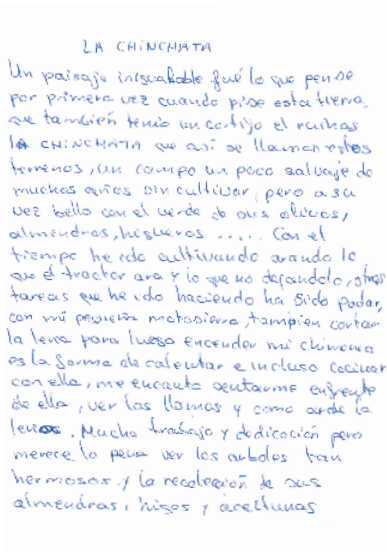 LA CHINCHATA
Un paisaje inigualable fué lo que pense
por primera vez cuando pise esta tierra,
que también tenia un cortijo el ruinas
LA CHINCHATA que asi se llaman estos
terrenos, un campo un poco salvaje de
muchos años sin cultivar, pero a su
vez bello con el verde de sus olivos,
almendros, higueros ..... Con el
tiempo he ido cultivando arando lo
que el tractor ara y lo que no dejandolo, otras
tareas que he ido haciendo ha sido podar,
con mi pequeña motosierra, tambien cortar
la leña para luego encender mi chimenea
es la forma de calentar e incluso cocinar
con ella, me encanta sentarme enfrente
de ella, ver las llamas y como arde la
leña. Mucho trabajo y dedicación pero
merece la pena ver los arboles tan
hermosos y la recolección de sus
almendras, higos y aceitunas